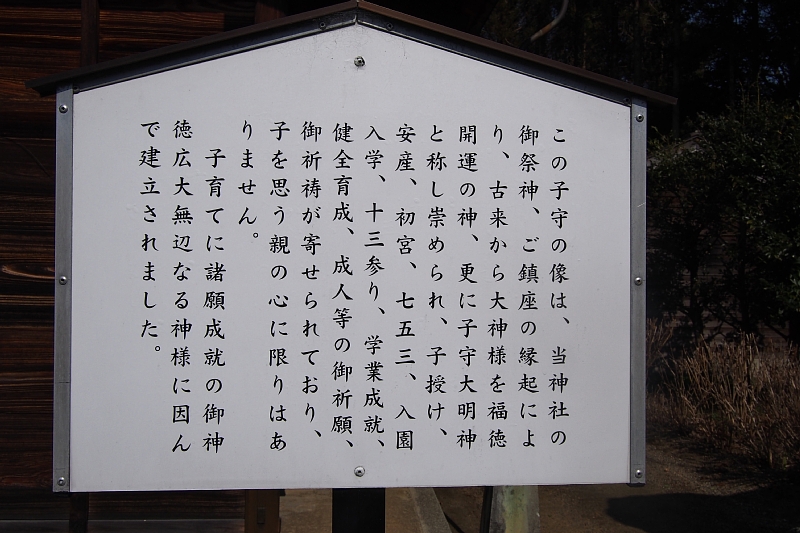 この子守の像は、当神社の
御祭神、ご鎮座の縁起によ
り、古来から大神様を福徳
開運の神、更に子守大明神
と称し崇められ、子授け、
安産、初宮、七五三、入園
入学、十三参り、学業成就、
健全育成、成人等の御祈願、
御祈祷が寄せられており、
子を思う親の心に限りはあ
りません。
子育てに諸願成就の御神
徳広大無辺なる神様に因ん
で建立されました。